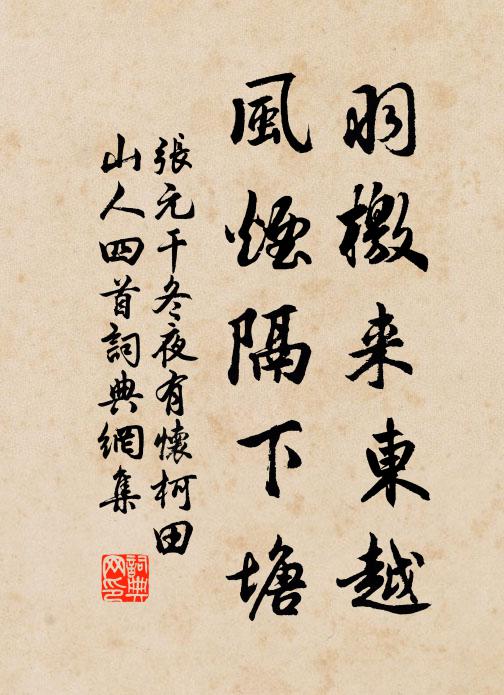 羽檄来東越
風煙隔下塘
張元干冬夜有懷柯田
山人四首詞典網集
詞典
网印